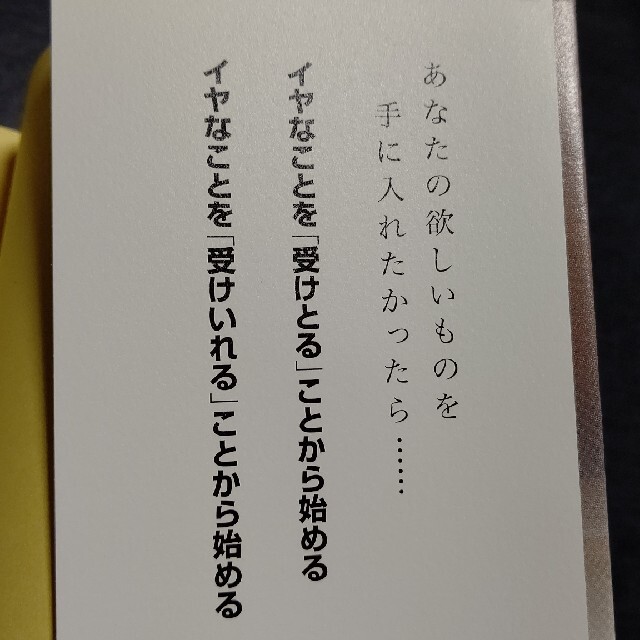 あなたの欲しいものを
手に入れたかったら……
イヤなことを「受けとる」ことから始める
イヤなことを「受けいれる」ことから始める